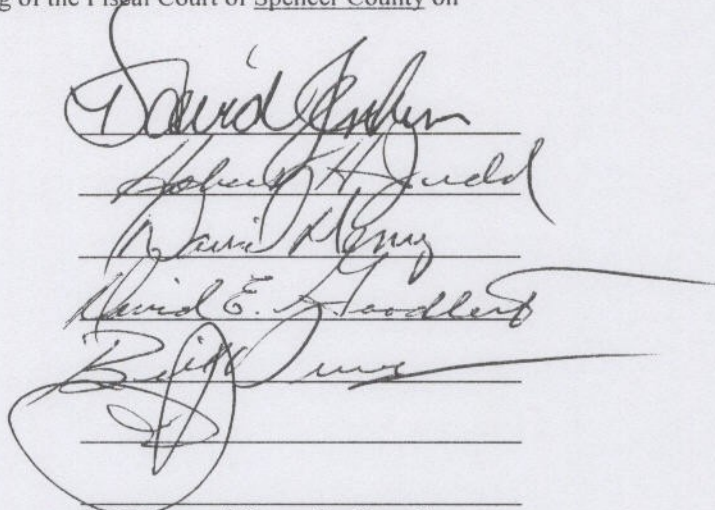 g of the Fiscal Court of Spencer County on
David Jenkins
Robert H Judd
David Henry
David E. Goodlett